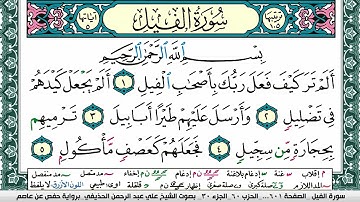 ترتيبها ١٠٥
سُورَةُ الفِيلِ
آياتها ٥
بِسْمِ اللَّهِ الرَّحْمَٰنِ الرَّحِيمِ
أَلَمْ تَرَ كَيْفَ فَعَلَ رَبُّكَ بِأَصْحَابِ الْفِيلِ ١ أَلَمْ يَجْعَلْ كَيْدَهُمْ
فِي تَضْلِيلٍ ٢ وَأَرْسَلَ عَلَيْهِمْ طَيْرًا أَبَابِيلَ ٣ تَرْمِيهِم
بِحِجَارَةٍ مِّن سِجِّيلٍ ٤ فَجَعَلَهُمْ كَعَصْفٍ مَّأْكُولٍ ٥
سورة الفيل الصفحة ٦٠١ الحزب ٦٠ الجزء ٣٠ بصوت الشيخ علي عبد الرحمن الحذيفي برواية حفص عن عاصم